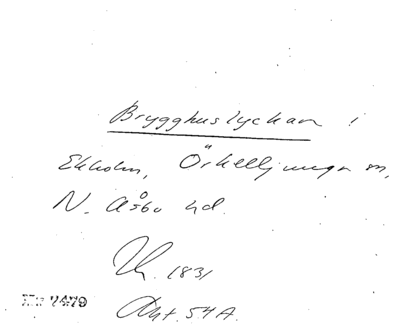 Brygghuslyckan i
Ekholm, Örkelljunga sn,
N. Åsbo hd.
1831
Akt. 54 A.
7479